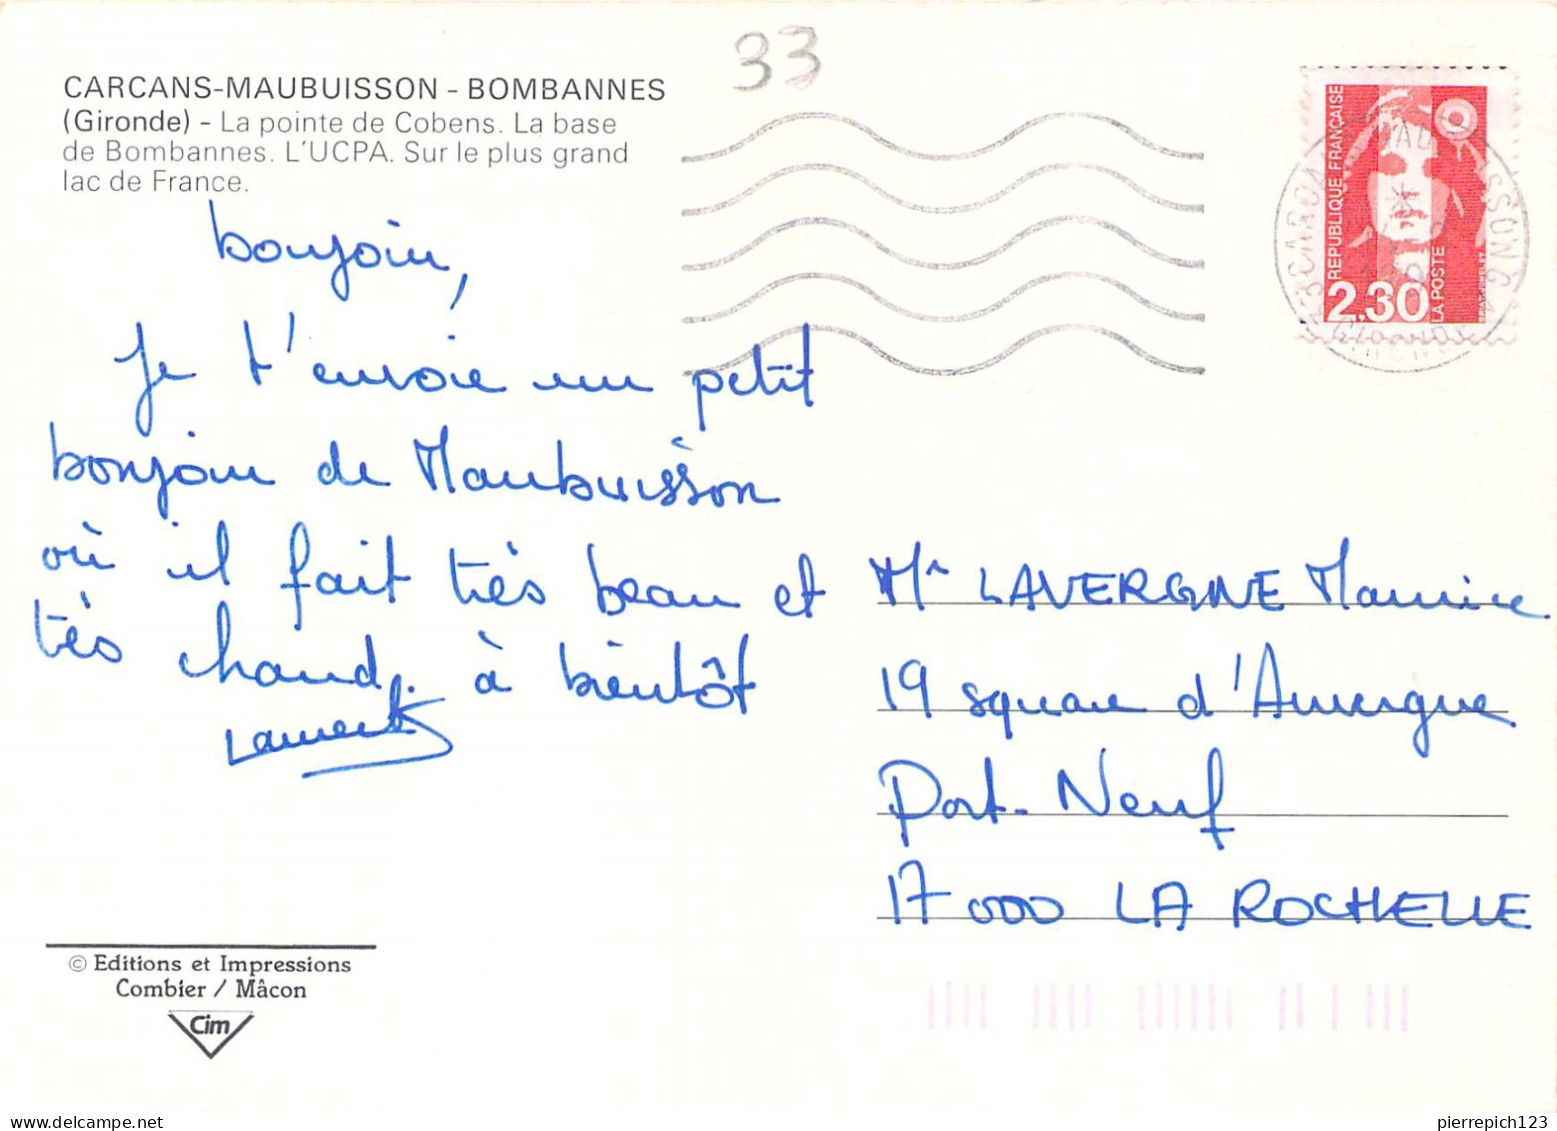 33
CARCANS-MAUBUISSON - BOMBANNES
(Gironde) - La pointe de Cobens. La base
de Bombannes. L'UCPA. Sur le plus grand
lac de France.
REPUBLIQUE FRANÇAISE
LA POSTE
2,30
GIRONDE
bonjour,
Je t'envoie un petit
bonjour de Maubuisson
où il fait très beau et
très chaud. à bientôt
Laurent
Mr LAVERGNE Maurice
19 square d'Auvergne
Port-Neuf
17000 LA ROCHELLE
© Editions et Impressions
Combier / Mâcon
Cim
pierrepich123